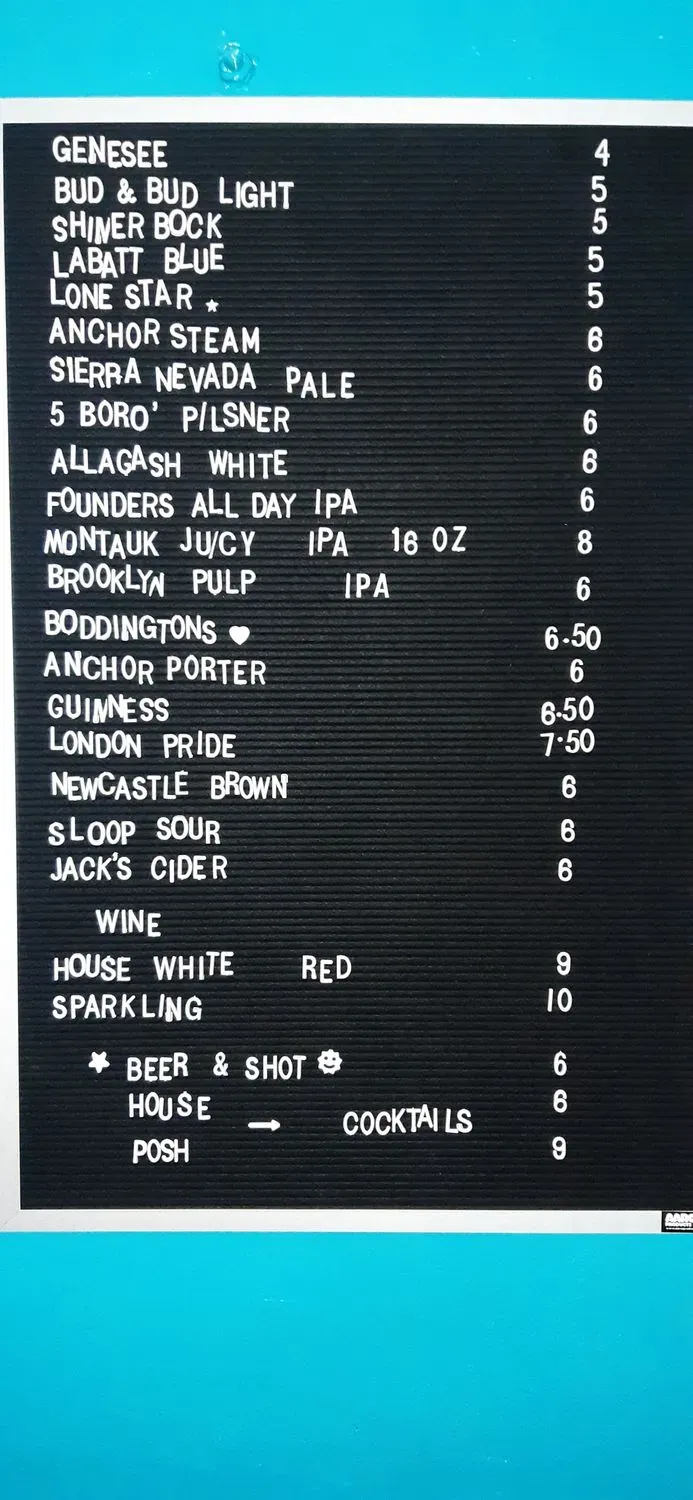 GENESEE 4
BUD & BUD LIGHT 5
SHINER BOCK 5
LABATT BLUE 5
LONE STAR 5
ANCHOR STEAM 6
SIERRA NEVADA PALE 6
5 BORO' PILSNER 6
ALLAGASH WHITE 6
FOUNDERS ALL DAY IPA 6
MONTAUK JUICY IPA 16 OZ 8
BROOKLYN PULP IPA 6
BODDINGTONS 6.50
ANCHOR PORTER 6
GUINNESS 6.50
LONDON PRIDE 7.50
NEWCASTLE BROWN 6
SLOOP SOUR 6
JACK'S CIDER 6
WINE
HOUSE WHITE RED 9
SPARKLING 10
BEER & SHOT 6
HOUSE 6
→ COCKTAILS
POSH 9